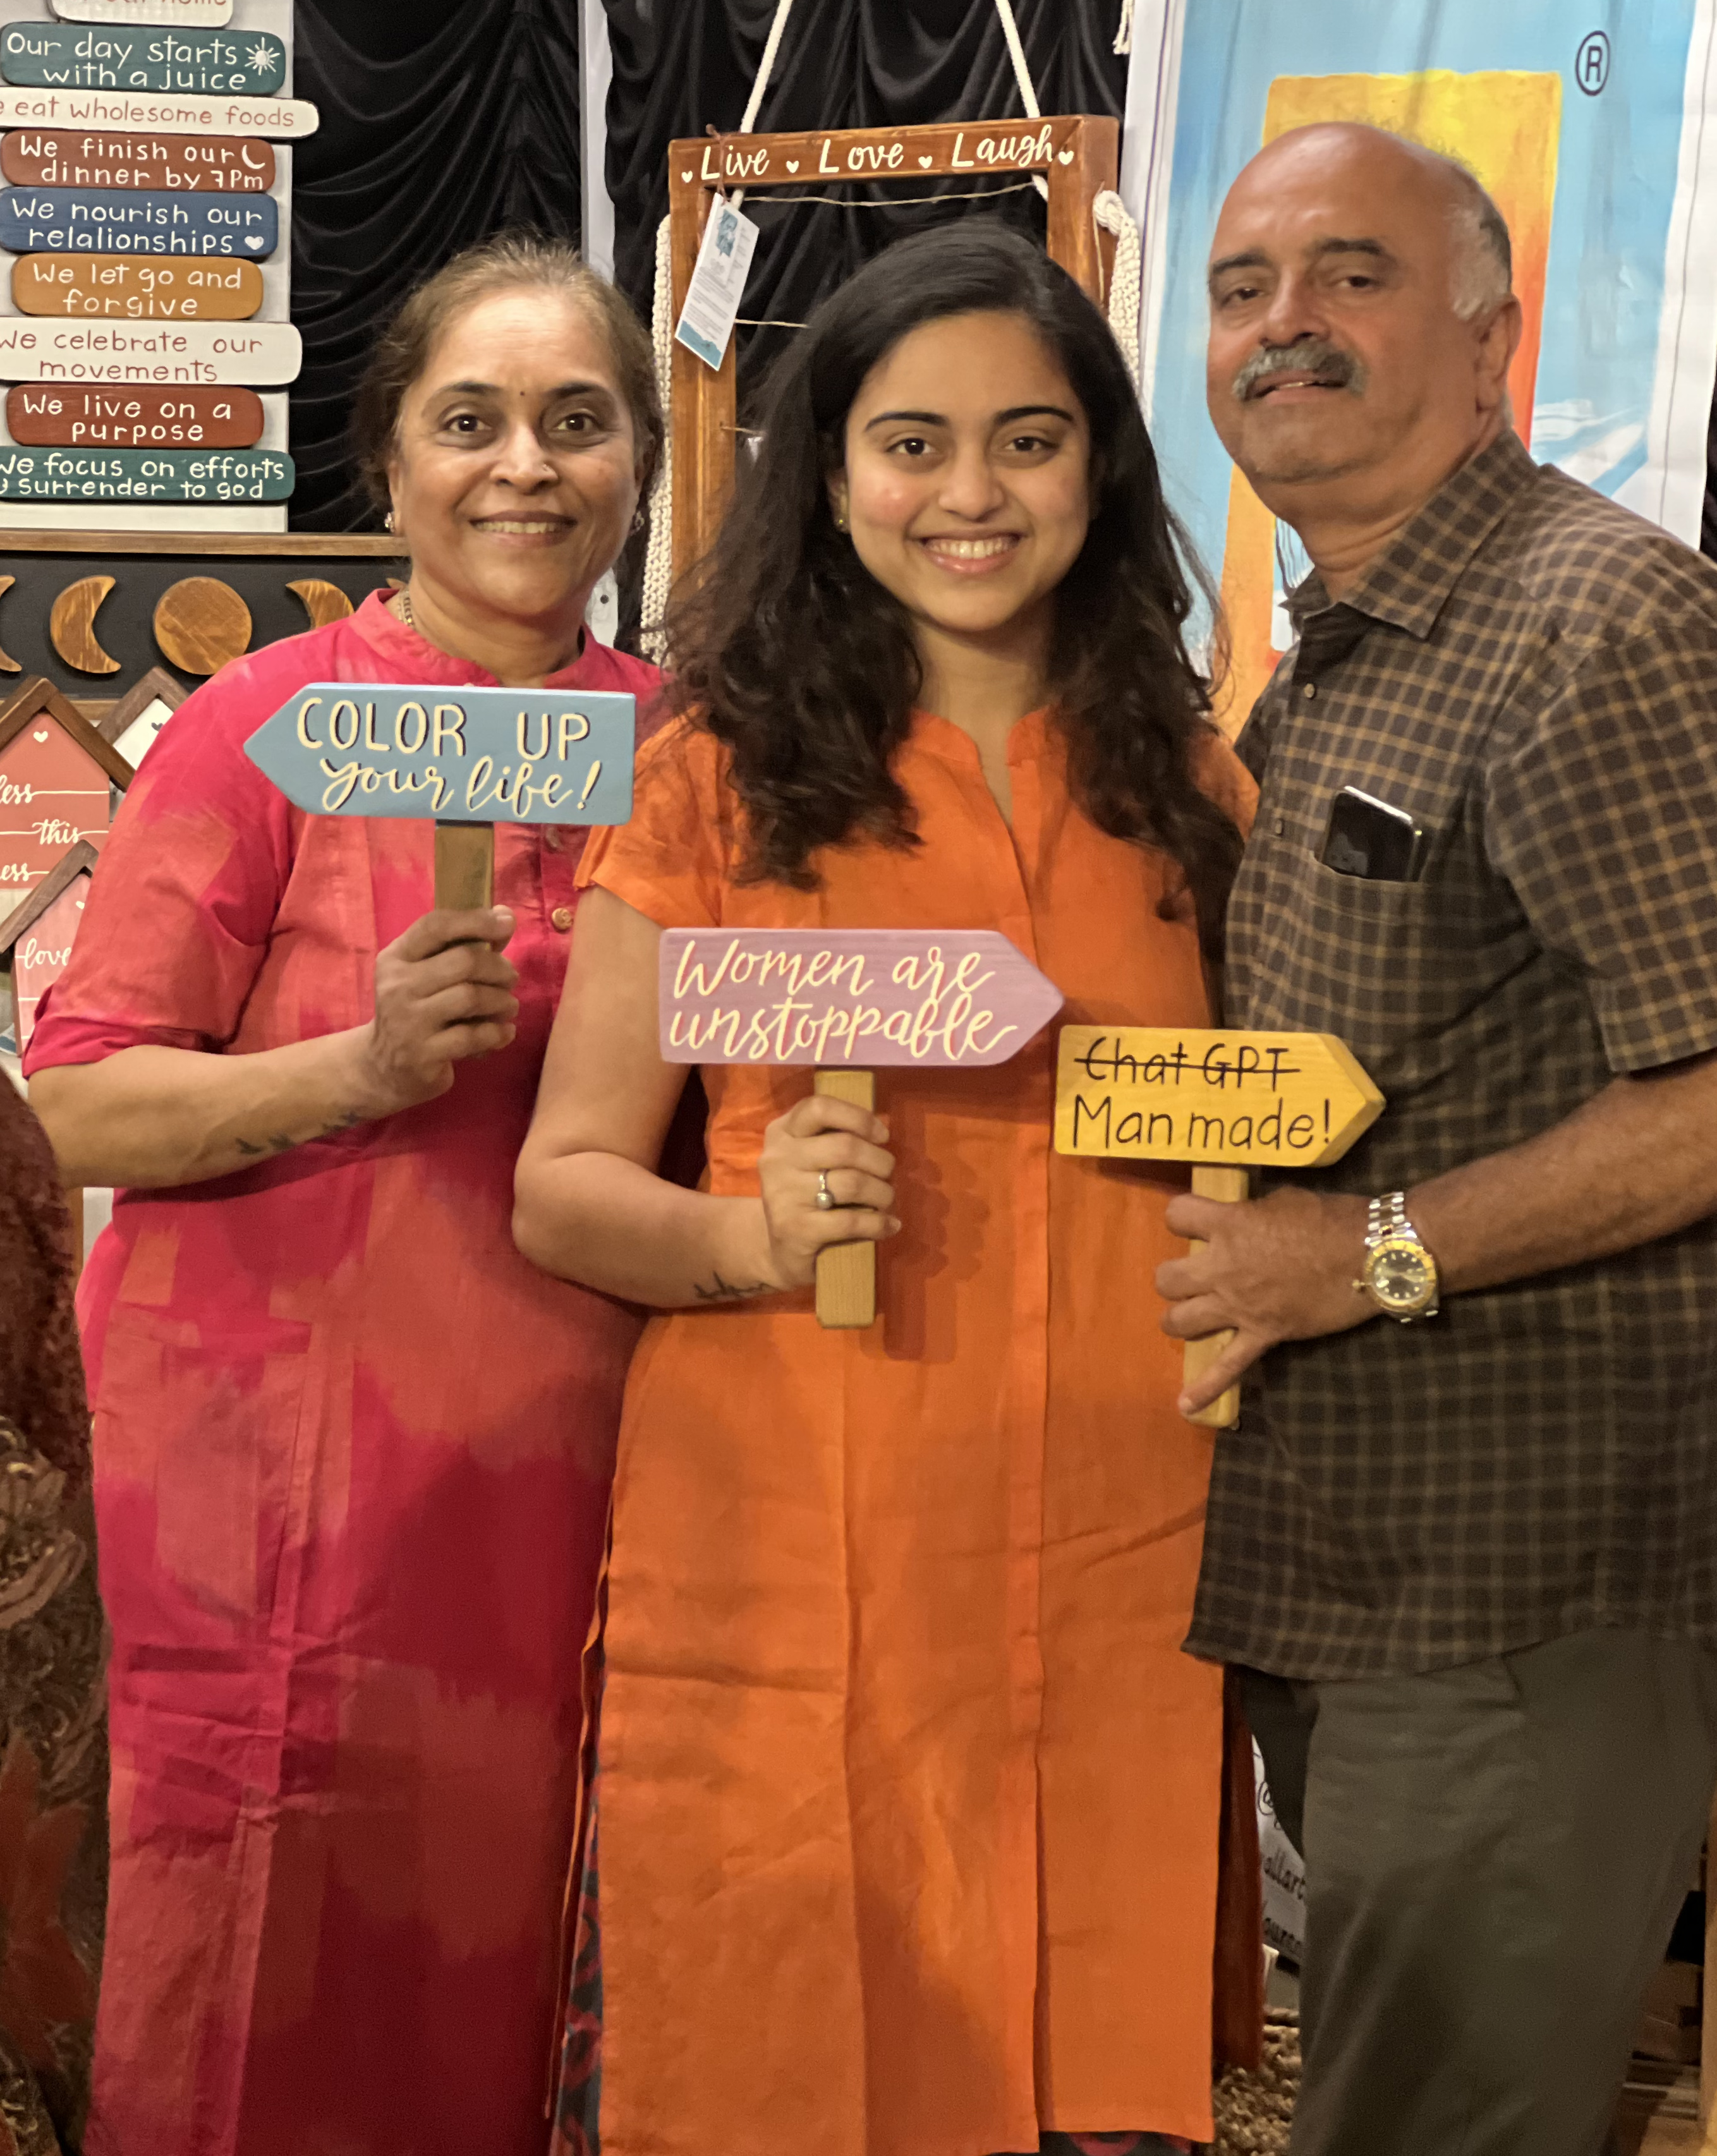 our home
Our day starts
with a juice
eat wholesome foods
We finish our
dinner by 7Pm
We nourish our
relalionships
We let go and
forgive
We celebrate our
movements
We live on a
purpose
We focus on efforts
surrender to god
Live Love Laugh
®
less
this
ess
love
COLOR UP
your life!
Women are
unstoppable
Chat GPT
Man made!